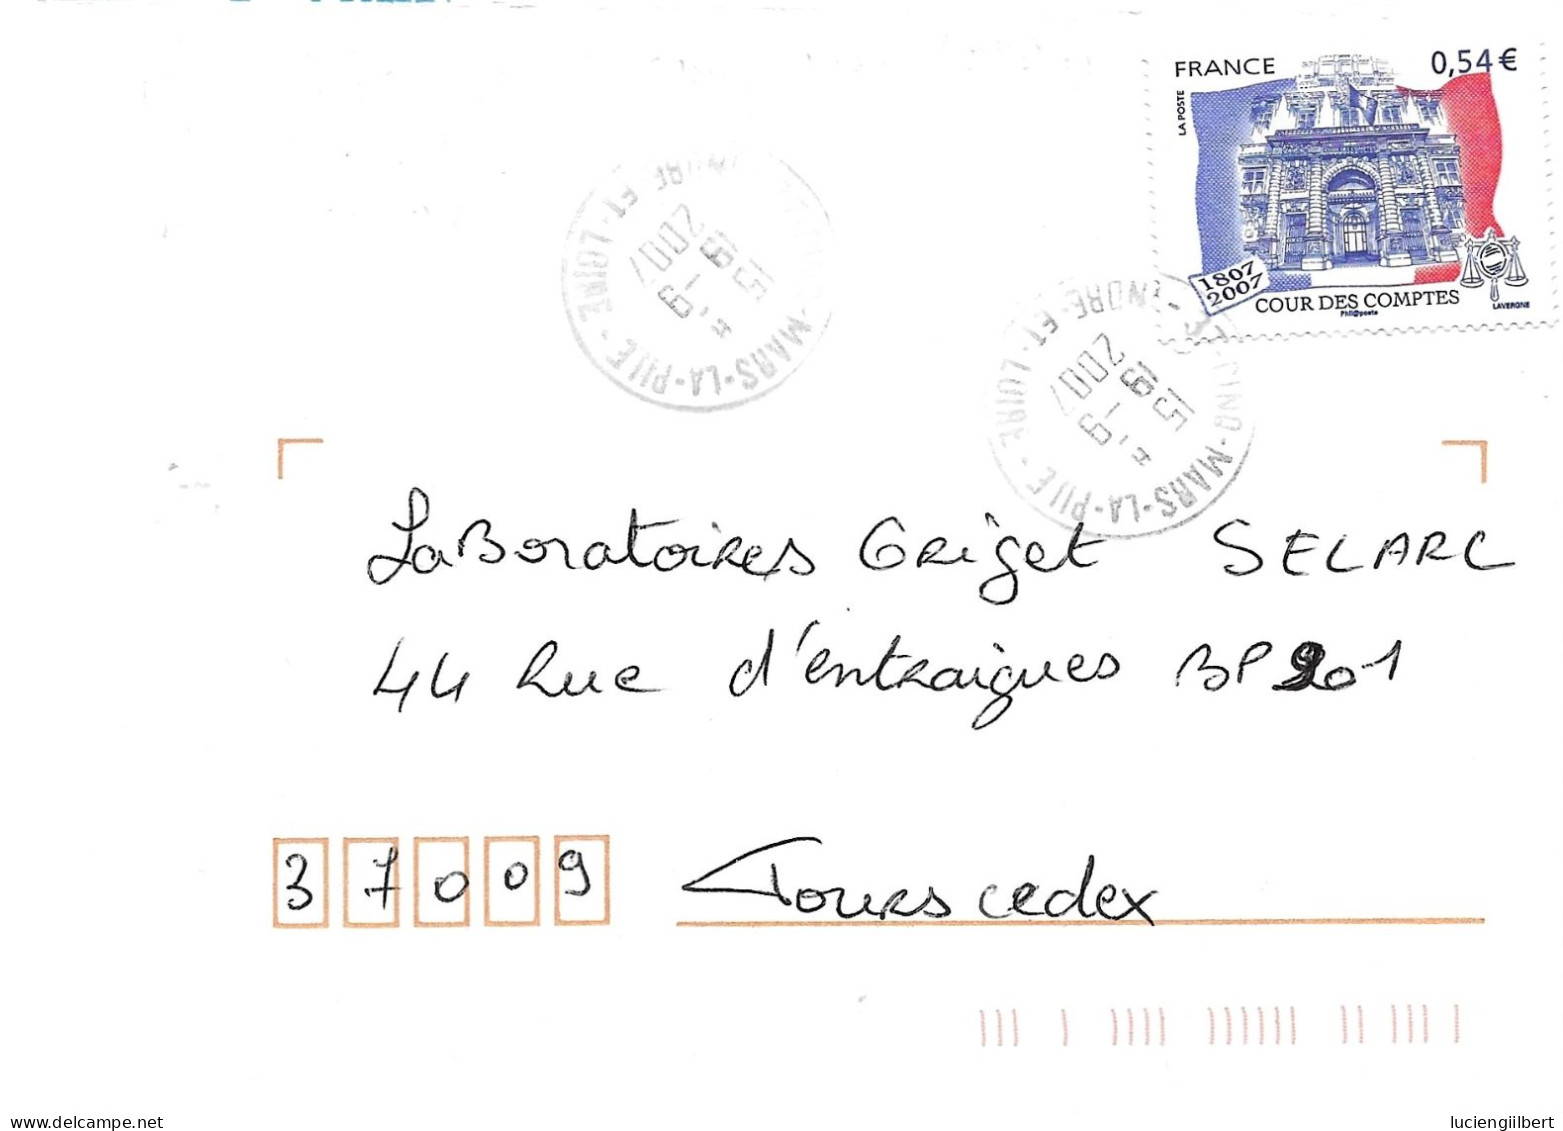 FRANCE 0,54 €
LA POSTE
1807
2007
COUR DES COMPTES
Phil@poste
LAVERGNE
MARS-LA-PILE - INDRE-ET-LOIRE
15 H
19 - 9
2007
CINQ-MARS-LA-PILE - INDRE-ET-LOIRE
15 H
19 - 9
2007
LaBoratoires Griget SELARL
44 Rue d'entraigues BP 201
37009 Tours cedex
www.delcampe.net
luciengilbert